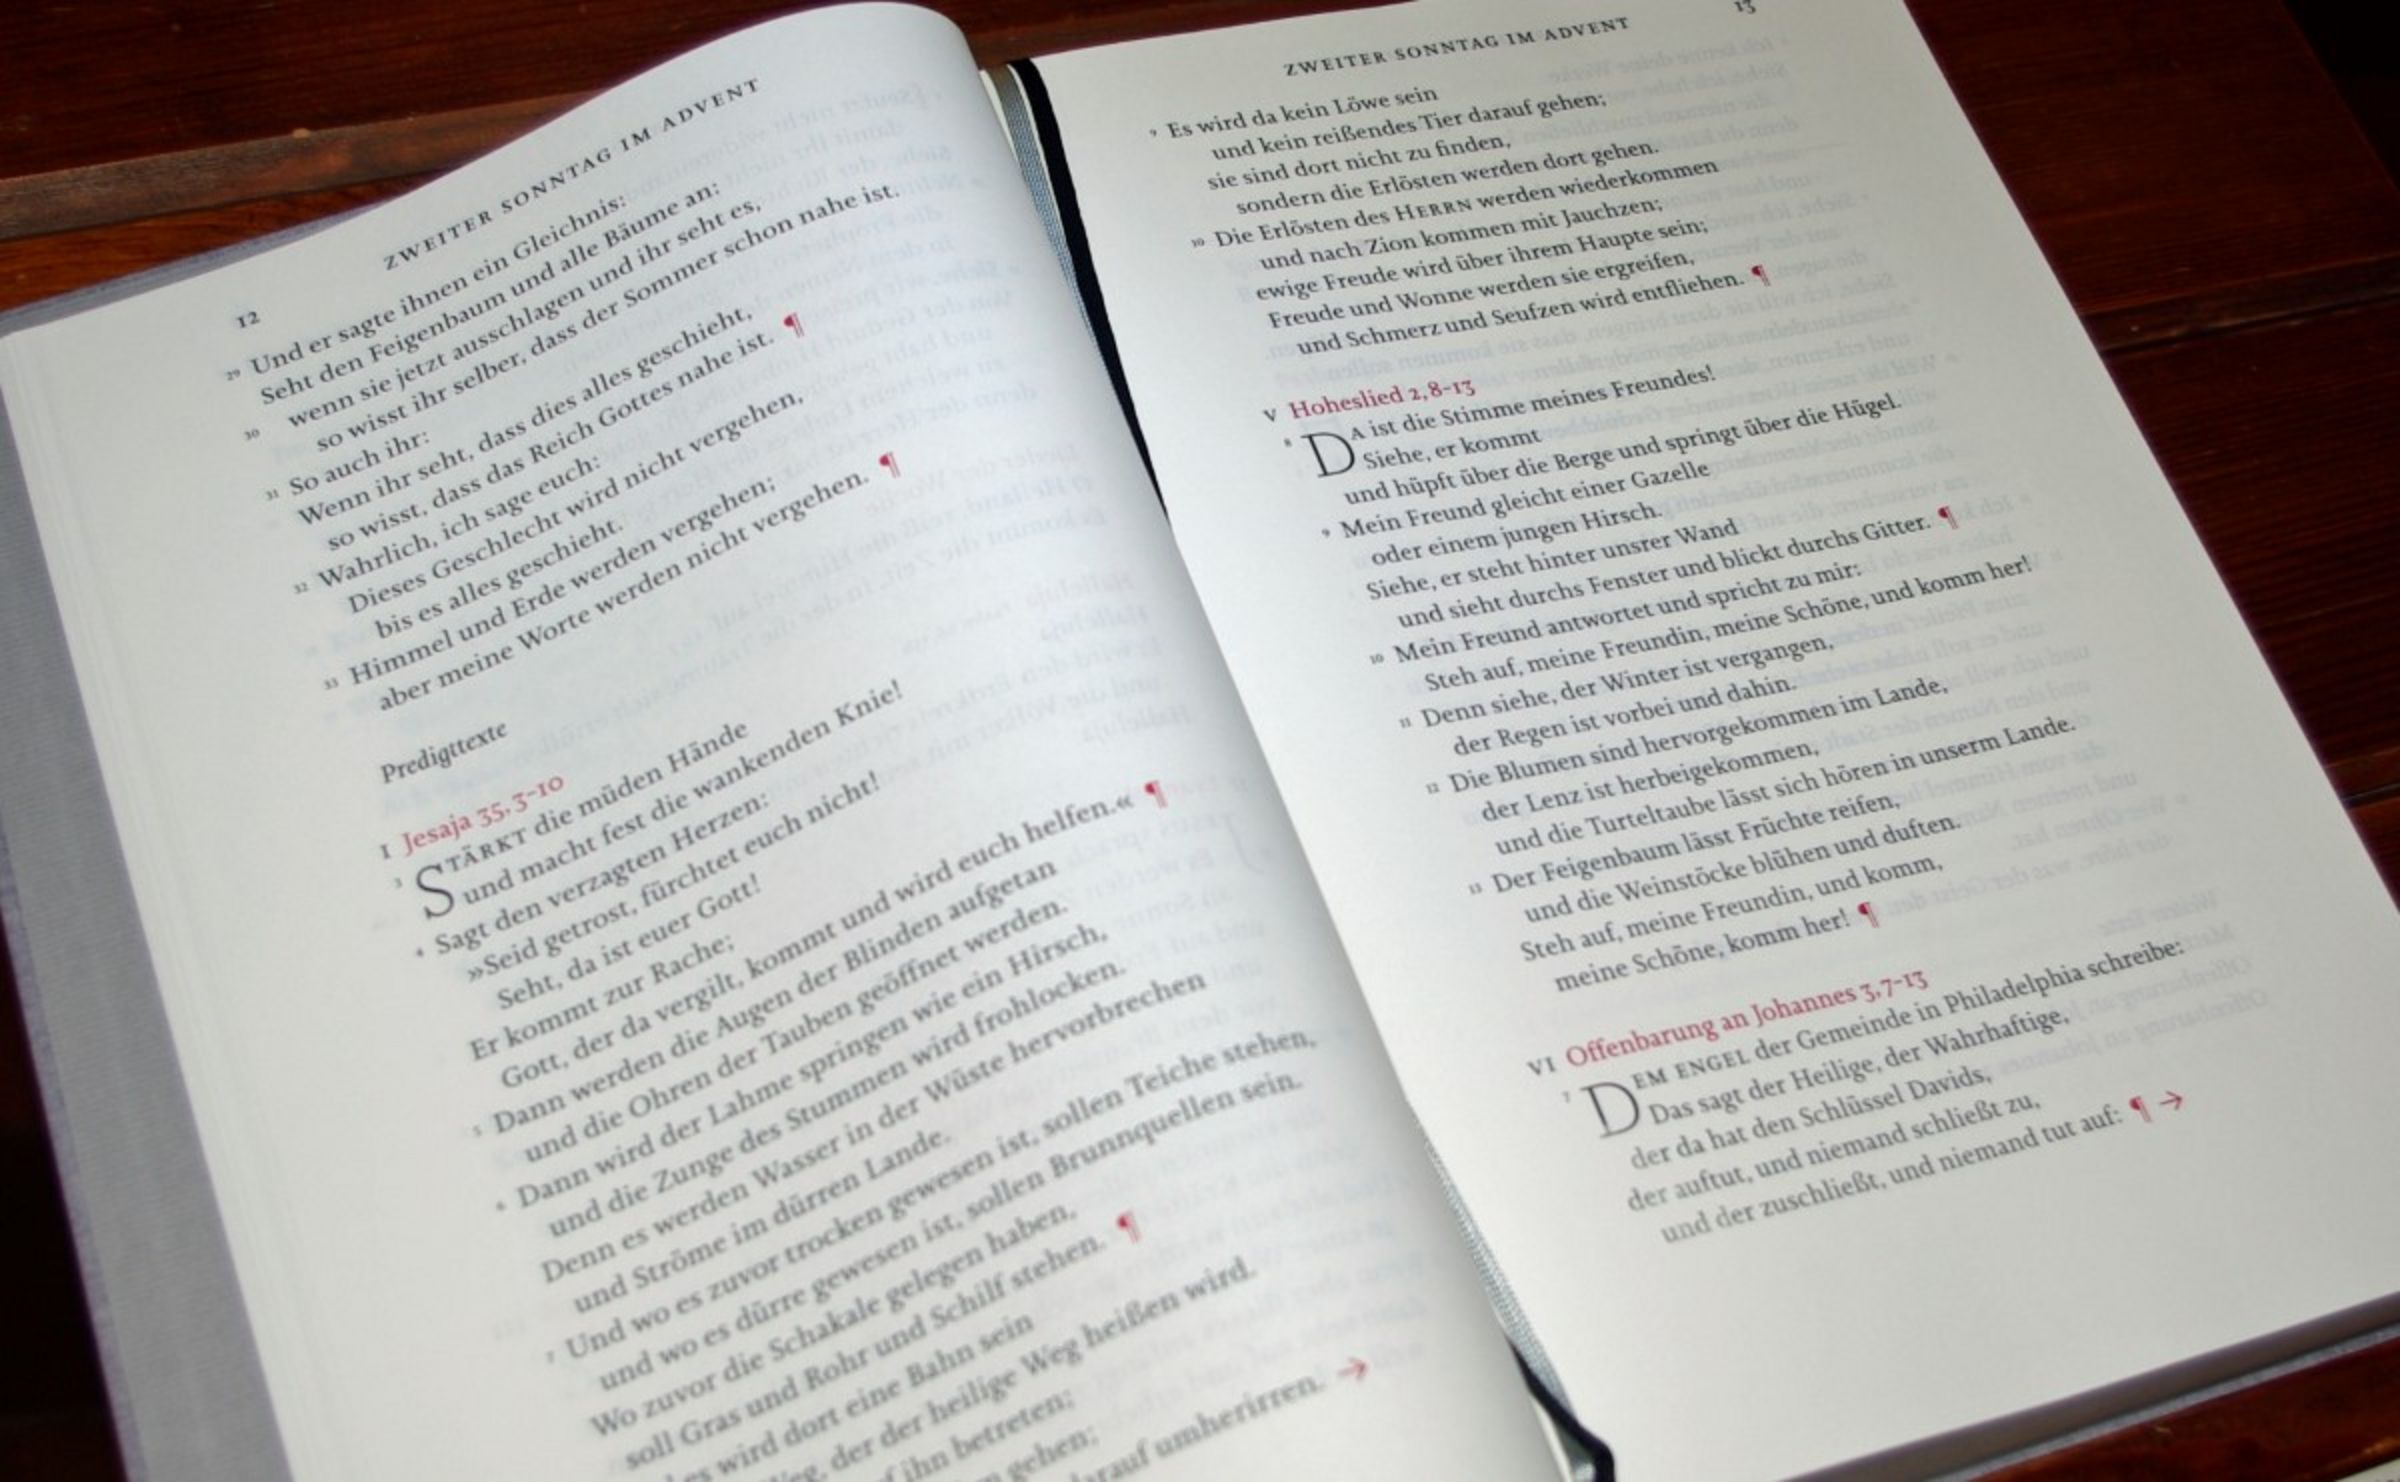 12
ZWEITER SONNTAG IM ADVENT
29 Und er sagte ihnen ein Gleichnis:
Seht den Feigenbaum und alle Bäume an:
30 wenn sie jetzt ausschlagen und ihr seht es,
so wisst ihr selber, dass der Sommer schon nahe ist.
31 So auch ihr:
Wenn ihr seht, dass dies alles geschieht,
so wisst, dass das Reich Gottes nahe ist. ¶
32 Wahrlich, ich sage euch:
Dieses Geschlecht wird nicht vergehen,
bis es alles geschieht.
33 Himmel und Erde werden vergehen;
aber meine Worte werden nicht vergehen. ¶
Predigttexte
I Jesaja 35,3-10
3 STÄRKT die müden Hände
und macht fest die wankenden Knie!
4 Sagt den verzagten Herzen:
»Seid getrost, fürchtet euch nicht!
Seht, da ist euer Gott!
Er kommt zur Rache;
Gott, der da vergilt, kommt und wird euch helfen.« ¶
5 Dann werden die Augen der Blinden aufgetan
und die Ohren der Tauben geöffnet werden.
6 Dann wird der Lahme springen wie ein Hirsch,
und die Zunge des Stummen wird frohlocken.
Denn es werden Wasser in der Wüste hervorbrechen
und Ströme im dürren Lande.
7 Und wo es zuvor trocken gewesen ist, sollen Teiche stehen,
und wo es dürre gewesen ist, sollen Brunnquellen sein.
Wo zuvor die Schakale gelegen haben,
soll Gras und Rohr und Schilf stehen. ¶
es wird dort eine Bahn sein
Weg, der der heilige Weg heißen wird.
ihn betreten;
gehen;
darauf umherirren. →
13
ZWEITER SONNTAG IM ADVENT
9 Es wird da kein Löwe sein
und kein reißendes Tier darauf gehen;
sie sind dort nicht zu finden,
sondern die Erlösten werden dort gehen.
10 Die Erlösten des HERRN werden wiederkommen
und nach Zion kommen mit Jauchzen;
ewige Freude wird über ihrem Haupte sein;
Freude und Wonne werden sie ergreifen,
und Schmerz und Seufzen wird entfliehen. ¶
V Hoheslied 2,8-13
8 DA ist die Stimme meines Freundes!
Siehe, er kommt
und hüpft über die Berge und springt über die Hügel.
9 Mein Freund gleicht einer Gazelle
oder einem jungen Hirsch.
Siehe, er steht hinter unsrer Wand
und sieht durchs Fenster und blickt durchs Gitter. ¶
10 Mein Freund antwortet und spricht zu mir:
Steh auf, meine Freundin, meine Schöne, und komm her!
11 Denn siehe, der Winter ist vergangen,
der Regen ist vorbei und dahin.
12 Die Blumen sind hervorgekommen im Lande,
der Lenz ist herbeigekommen,
und die Turteltaube lässt sich hören in unserm Lande.
13 Der Feigenbaum lässt Früchte reifen,
und die Weinstöcke blühen und duften.
Steh auf, meine Freundin, und komm,
meine Schöne, komm her! ¶
VI Offenbarung an Johannes 3,7-13
7 DEM ENGEL der Gemeinde in Philadelphia schreibe:
Das sagt der Heilige, der Wahrhaftige,
der da hat den Schlüssel Davids,
der auftut, und niemand schließt zu,
und der zuschließt, und niemand tut auf: ¶ →